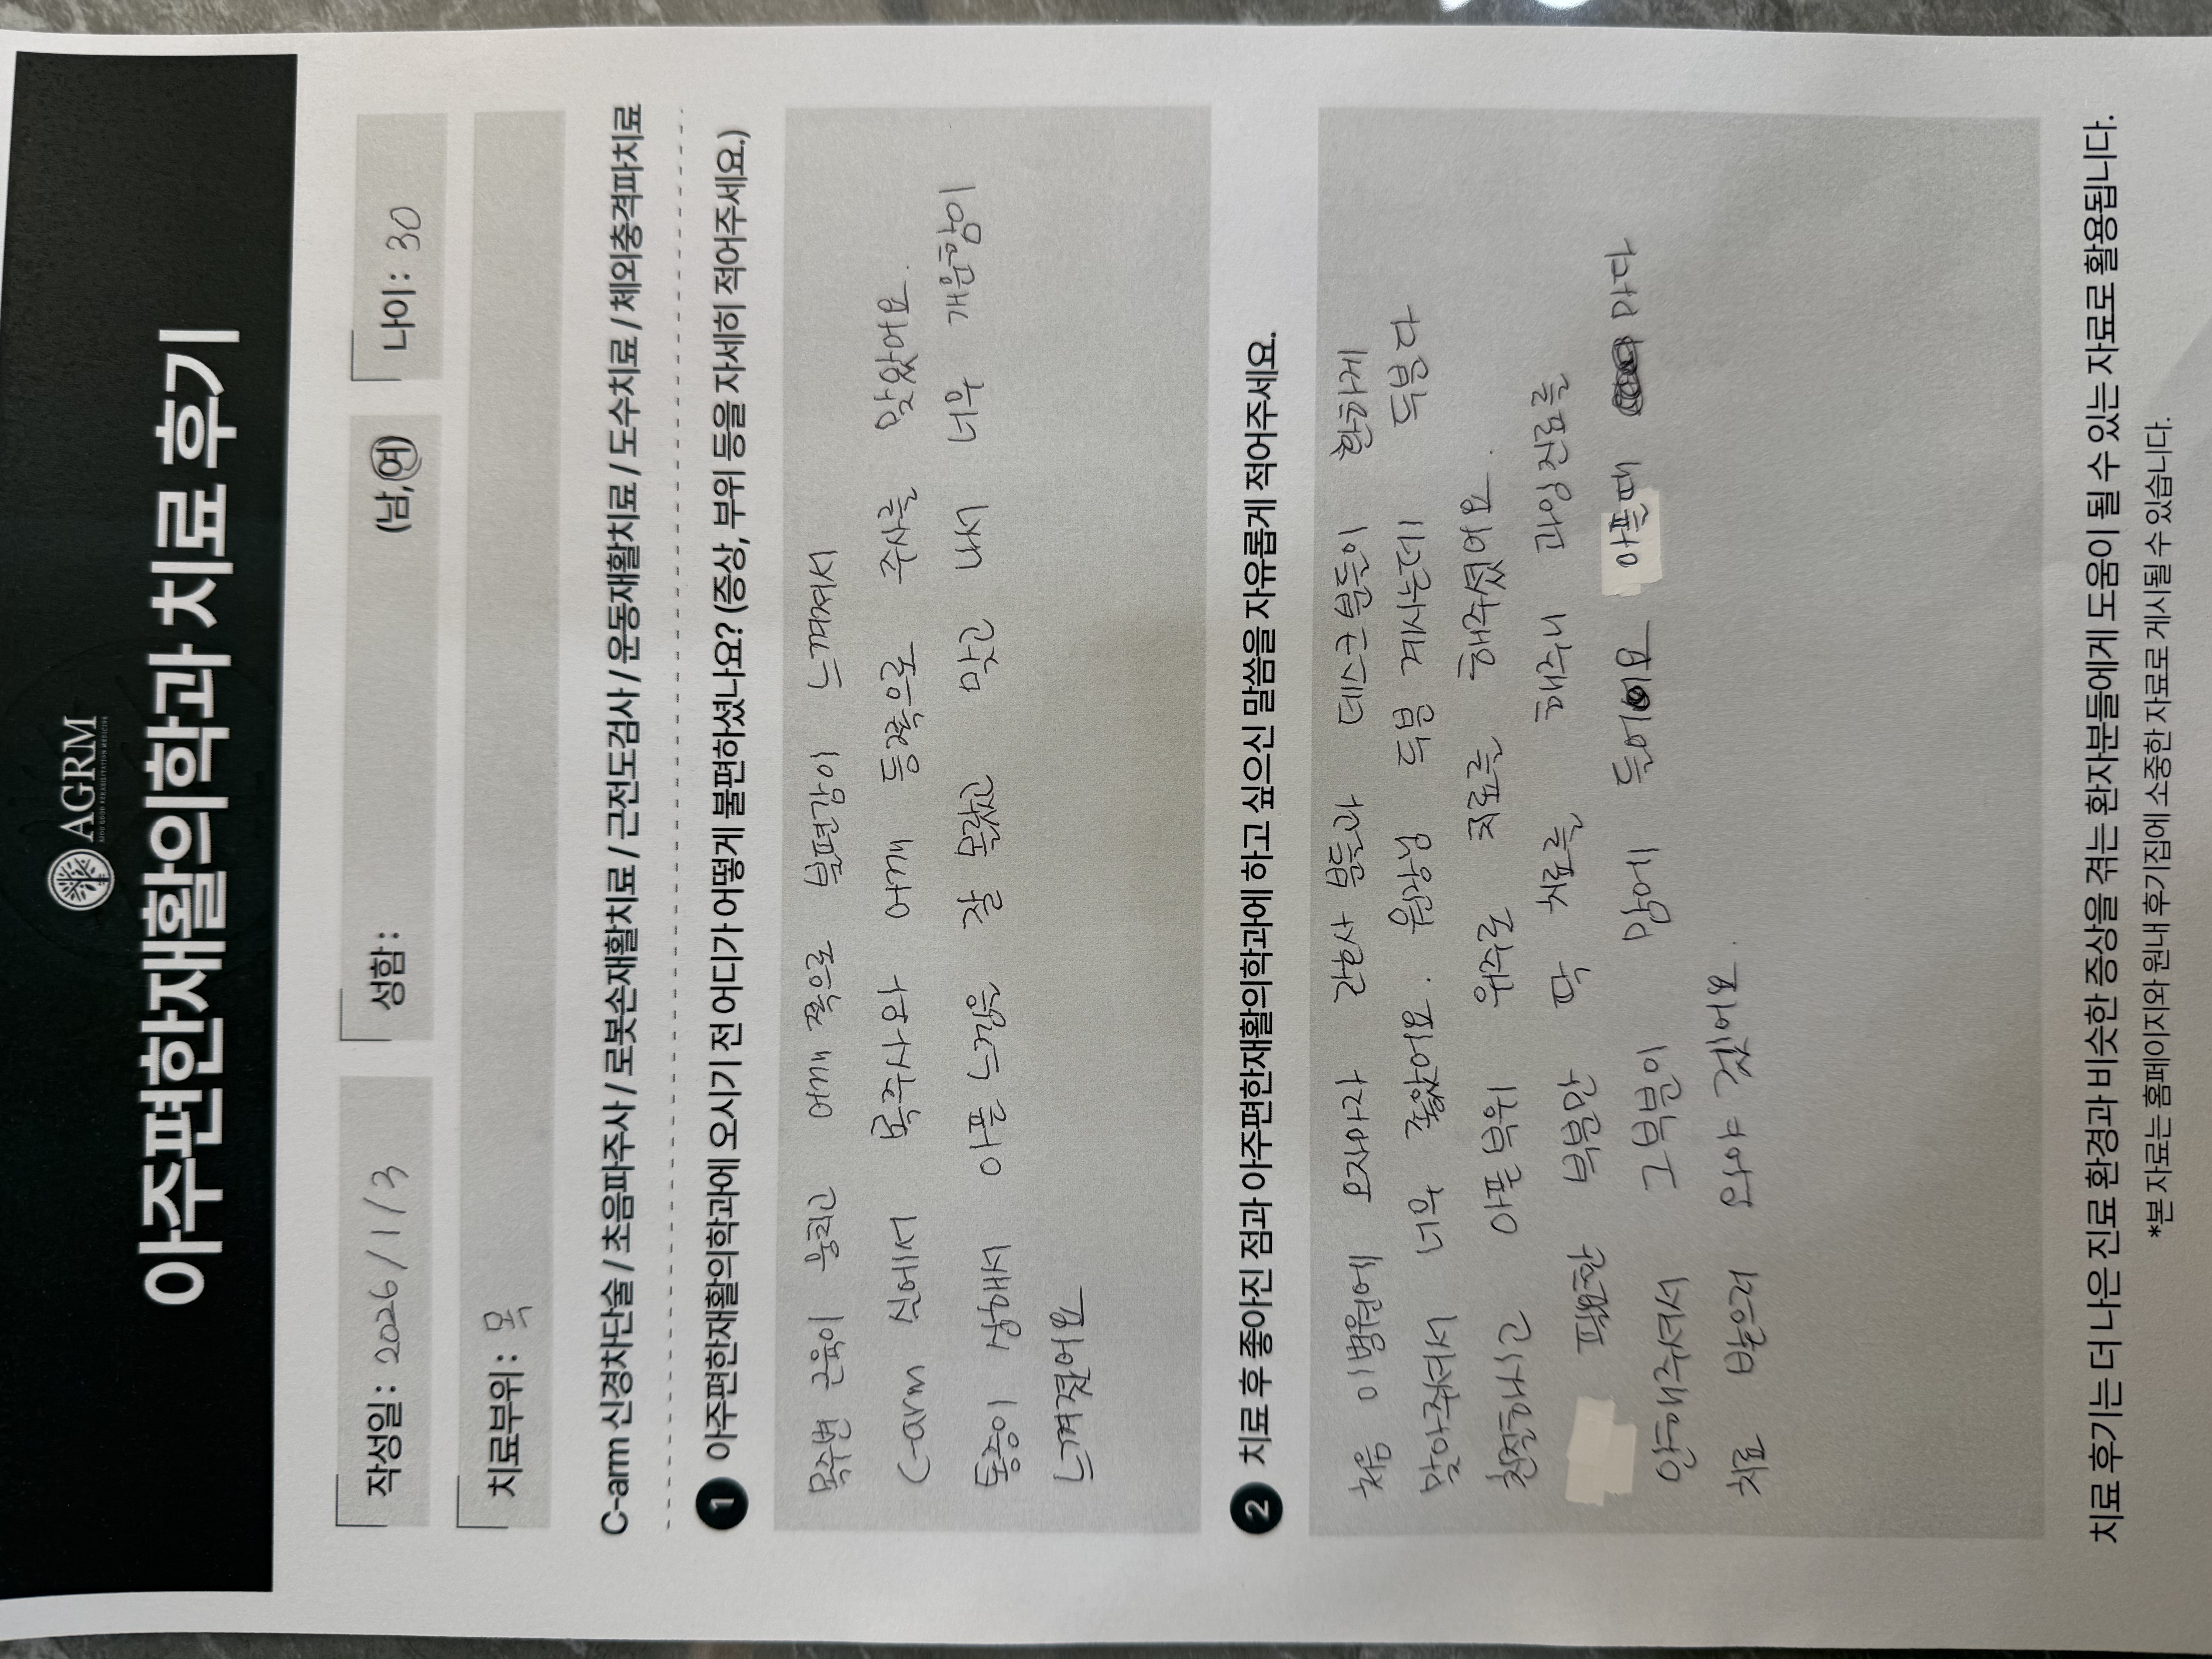 AGRM
아주편한재활의학과 치료 후기
작성일 : 2026/1/3 성함 : (남,여) 나이 : 30
치료부위 : 목
C-arm 신경차단술 / 초음파주사 / 로봇손재활치료 / 근전도검사 / 운동재활치료 / 도수치료 / 체외충격파치료
1 아주편한재활의학과에 오시기 전 어디가 어떻게 불편하셨나요? (증상, 부위 등을 자세히 적어주세요.)
목주변 근육이 뭉치고 어깨 쪽으로 불편감이 느껴져서
C-arm 실에서 목주사와 어깨 등쪽으로 주사를 맞았어요.
통증이 심해서 아픈 느낌은 잘 몰랐고 맞고 나서 너무 개운함이
느껴졌어요
2 치료 후 좋아진 점과 아주편한재활의학과에 하고 싶으신 말씀을 자유롭게 적어주세요.
처음 이병원에 오자마자 간호사 분들과 데스크분들이 환하게
맞아주셔서 너무 좋았어요. 원장님 두분 계시는데 두분다
친절하시고 아픈부위 위주로 치료를 해주셨어요.
필요한 부분만 딱 치료를 해주니 과잉진료를
안해주셔서 그부분이 맘에 들어요 아플때 마다
치료 받으러 와야 겠어요.
치료 후기는 더 나은 진료 환경과 비슷한 증상을 겪는 환자분들에게 도움이 될 수 있는 자료로 활용됩니다.
*본 자료는 홈페이지와 원내 후기집에 소중한 자료로 게시될 수 있습니다.